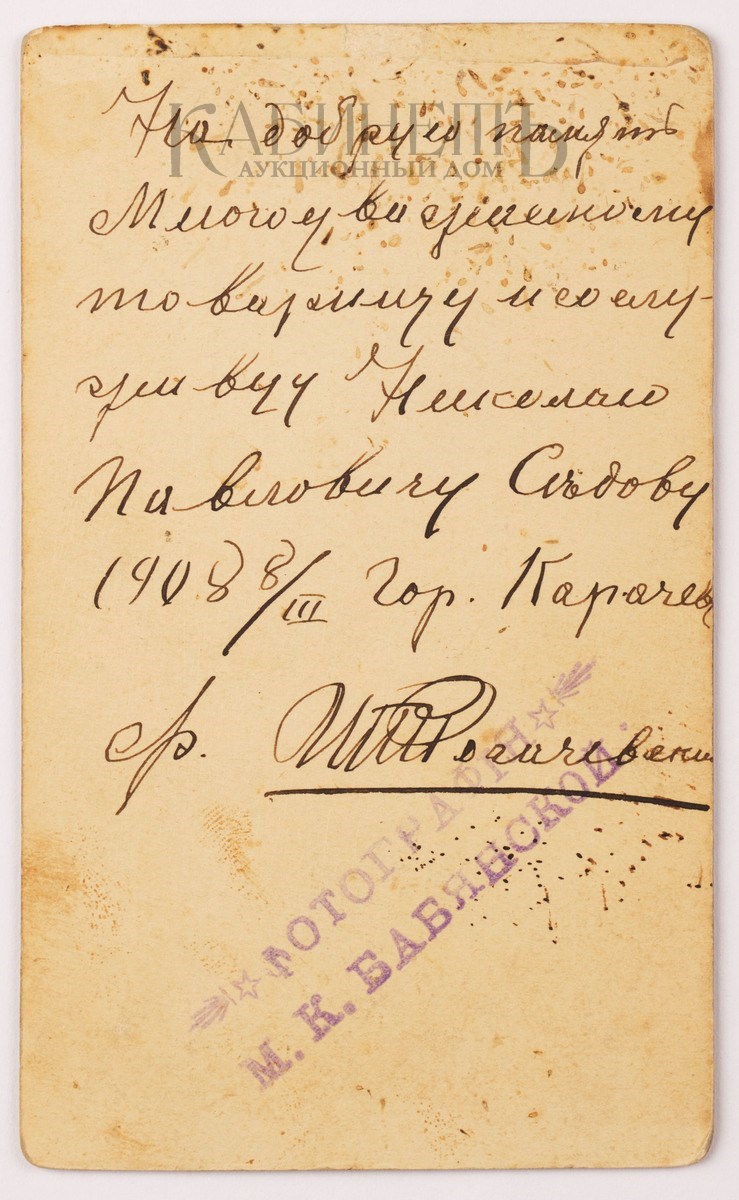 КАБИНЕТЪ
АУКЦИОННЫЙ ДОМ
На добрую память
Многоуважаемому
товарищу и сослу-
живцу Николаю
Павловичу Сѣдову
1908 8/III Гор. Карачевъ
ФОТОГРАФІЯ
М. К. БАБЯНСКОЙ.